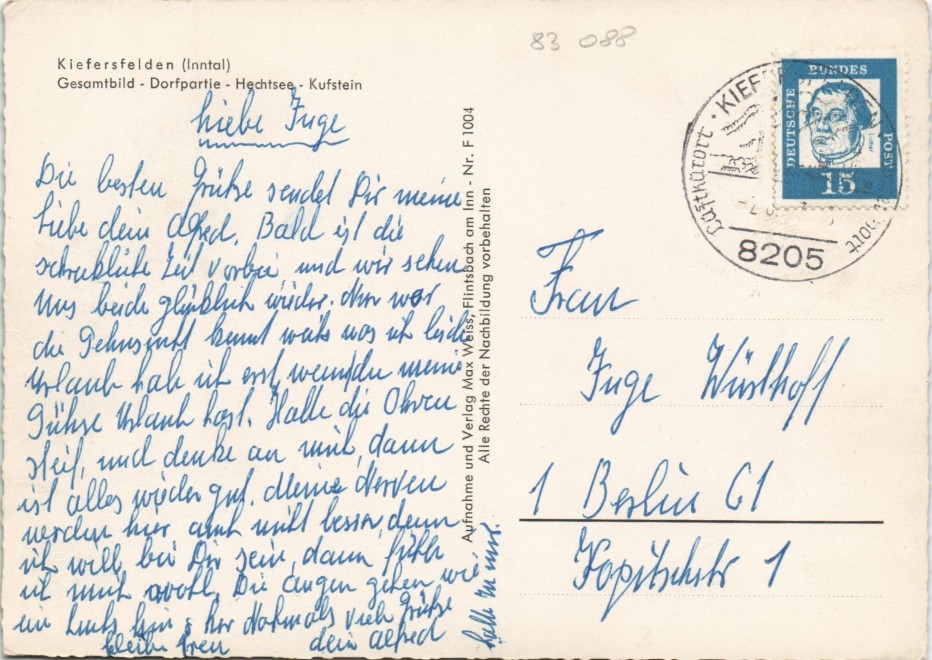 83 088
Kiefersfelden (Inntal)
Gesamtbild - Dorfpartie - Hechtsee - Kufstein
Liebe Inge
Die besten Grüße sendet Dir meine
Liebe dein Alfred. Bald ist die
schreckliche Zeit vorbei und wir sehen
uns beide glücklich wieder. Nur wer
die Sehnsucht kennt weiß was ich leide
Urlaub hab ich erst, wenn du meine
Süße Urlaub hast. Halte die Ohren
steif, und denke an mich, dann
ist alles wieder gut. Meine Nerven
werden hier auch nicht besser, denn
ich will bei Dir sein, dann fühle
ich mich wohl. Die Augen gehen wie
ein Luchs hin & her Nochmals viele Grüße
bleibe treu dein Alfred
Aufnahme und Verlag Max Weiss, Flintsbach am Inn - Nr. F 1004
Alle Rechte der Nachbildung vorbehalten
DEUTSCHE BUNDES POST
Luther
15
Luftkurort · KIEFERSFELDEN
8205
Frau
Inge Wüsthoff
1 Berlin 61
Kopischstr 1